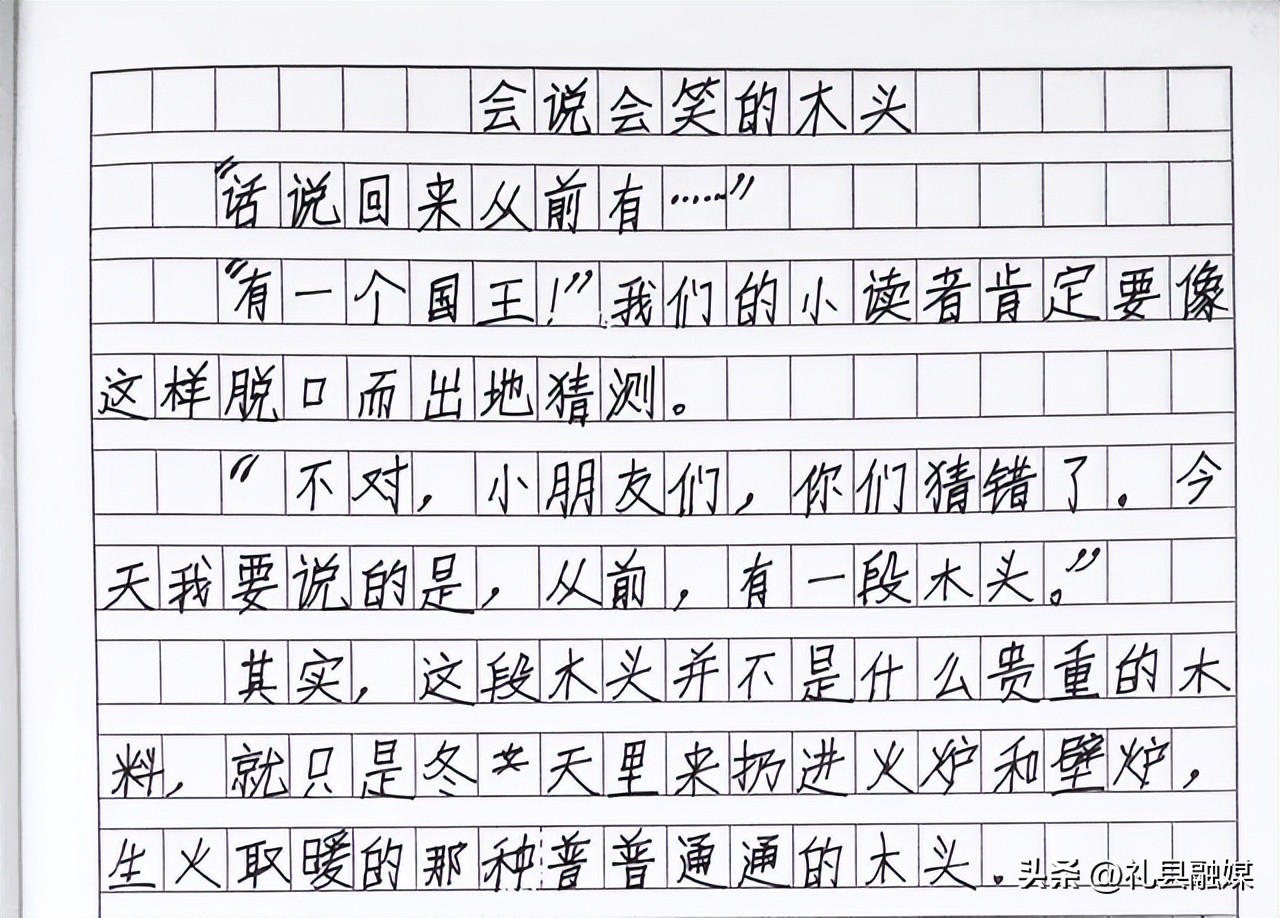 会说会笑的木头
“话说回来从前有……”
“有一个国王！”我们的小读者肯定要像
这样脱口而出地猜测。
“不对，小朋友们，你们猜错了。今
天我要说的是，从前，有一段木头。”
其实，这段木头并不是什么贵重的木
料，就只是冬天里来扔进火炉和壁炉，
生火取暖的那种普普通通的木头。
头条 @礼县融媒